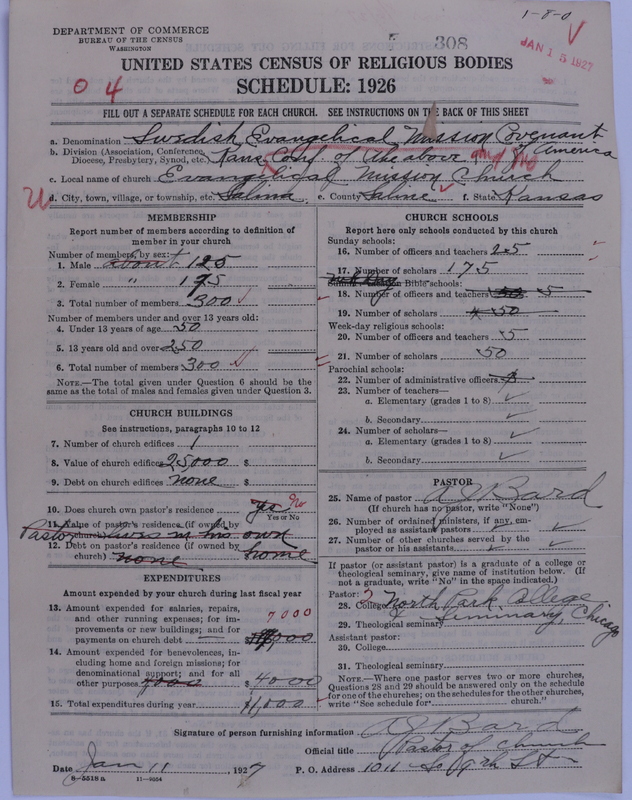 1-8-0
DEPARTMENT OF COMMERCE
BUREAU OF THE CENSUS
WASHINGTON
308
JAN 15 1927
UNITED STATES CENSUS OF RELIGIOUS BODIES
SCHEDULE: 1926
0 4
FILL OUT A SEPARATE SCHEDULE FOR EACH CHURCH. SEE INSTRUCTIONS ON THE BACK OF THIS SHEET
a. Denomination Swedish Evangelical Mission Covenant
of America
b. Division (Association, Conference,
Diocese, Presbytery, Synod, etc.) Kans. Conf of the above
c. Local name of church Evangelical Mission Church
d. City, town, village, or township, etc. Salina e. County Saline f. State Kansas
MEMBERSHIP
Report number of members according to definition of
member in your church
Number of members, by sex:
1. Male about 125
2. Female " 175
3. Total number of members 300
Number of members under and over 13 years old:
4. Under 13 years of age 50
5. 13 years old and over 250
6. Total number of members 300
NOTE.—The total given under Question 6 should be
same as the total of males and females given under Question 3.
CHURCH BUILDINGS
See instructions, paragraphs 10 to 12
7. Number of church edifices 1
8. Value of church edifices 25,000 $
9. Debt on church edifices none $
10. Does church own pastor's residence yes No
Yes or No
11. Value of pastor's residence (if owned by
church) Pastor lives in his own
home
12. Debt on pastor's residence (if owned by
church) none
EXPENDITURES
Amount expended by your church during last fiscal year
13. Amount expended for salaries, repairs,
and other running expenses; for im-
provements or new buildings; and for
payments on church debt 7000
14. Amount expended for benevolences,
including home and foreign missions; for
denominational support; and for all
other purposes $ 4000
15. Total expenditures during year 11,000
CHURCH SCHOOLS
Report here only schools conducted by this church
Sunday schools:
16. Number of officers and teachers 25
17. Number of scholars 175
Bible schools:
18. Number of officers and teachers 5
19. Number of scholars 50
Week-day religious schools:
20. Number of officers and teachers 5
21. Number of scholars 50
Parochial schools:
22. Number of administrative officers
23. Number of teachers—
a. Elementary (grades 1 to 8)
b. Secondary
24. Number of scholars—
a. Elementary (grades 1 to 8)
b. Secondary
PASTOR
25. Name of pastor A J Bard
(If church has no pastor, write "None")
26. Number of ordained ministers, if any, em-
ployed as assistant pastors
27. Number of other churches served by the
pastor or his assistants
If pastor (or assistant pastor) is a graduate of a college or
theological seminary, give name of institution below. (If
not a graduate, write "No" in the space indicated.)
Pastor:
28. College North Park College
29. Theological seminary Seminary, Chicago
Assistant pastor:
30. College
31. Theological seminary
NOTE.—Where one pastor serves two or more churches,
Questions 28 and 29 should be answered only on the schedule
for one of the churches; on the schedules for the other churches,
write "See schedule for church."
Signature of person furnishing information A J Bard
Official title Pastor of Church
Date Jan 11, 1927 P. O. Address 1011 So 9th St
8-5518a 11-9564